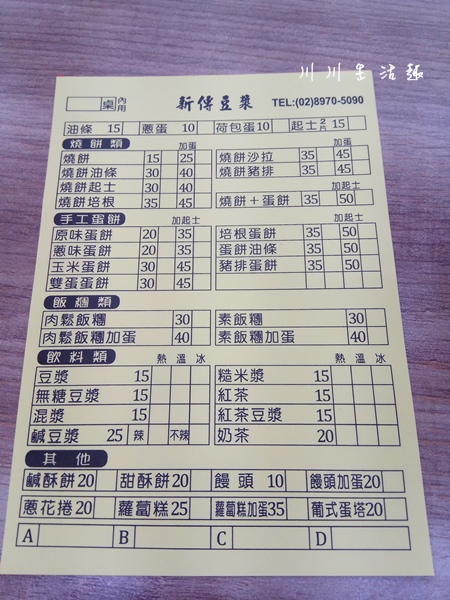 川川生活趣
桌 內用 新傳豆漿 TEL:(02)8970-5090
油條 15 蔥蛋 10 荷包蛋10 起士2片 15
燒餅類 加蛋 加蛋
燒餅 15 25 燒餅沙拉 35 45
燒餅油條 30 40 燒餅豬排 35 45
燒餅起士 30 40 加起士
燒餅培根 35 45 燒餅+蛋餅 35 50
手工蛋餅 加起士 加起士
原味蛋餅 20 35 培根蛋餅 35 50
蔥味蛋餅 20 35 蛋餅油條 35 50
玉米蛋餅 30 45 豬排蛋餅 35 50
雙蛋蛋餅 30 45
飯糰類
肉鬆飯糰 30 素飯糰 30
肉鬆飯糰加蛋 40 素飯糰加蛋 40
飲料類 熱 溫 冰 熱 溫 冰
豆漿 15 糙米漿 15
無糖豆漿 15 紅茶 15
混漿 15 紅茶豆漿 15
鹹豆漿 25 辣 不辣 奶茶 20
其他
鹹酥餅20 甜酥餅20 饅頭 10 饅頭加蛋20
蔥花捲20 蘿蔔糕25 蘿蔔糕加蛋35 葡式蛋塔20
A B C D